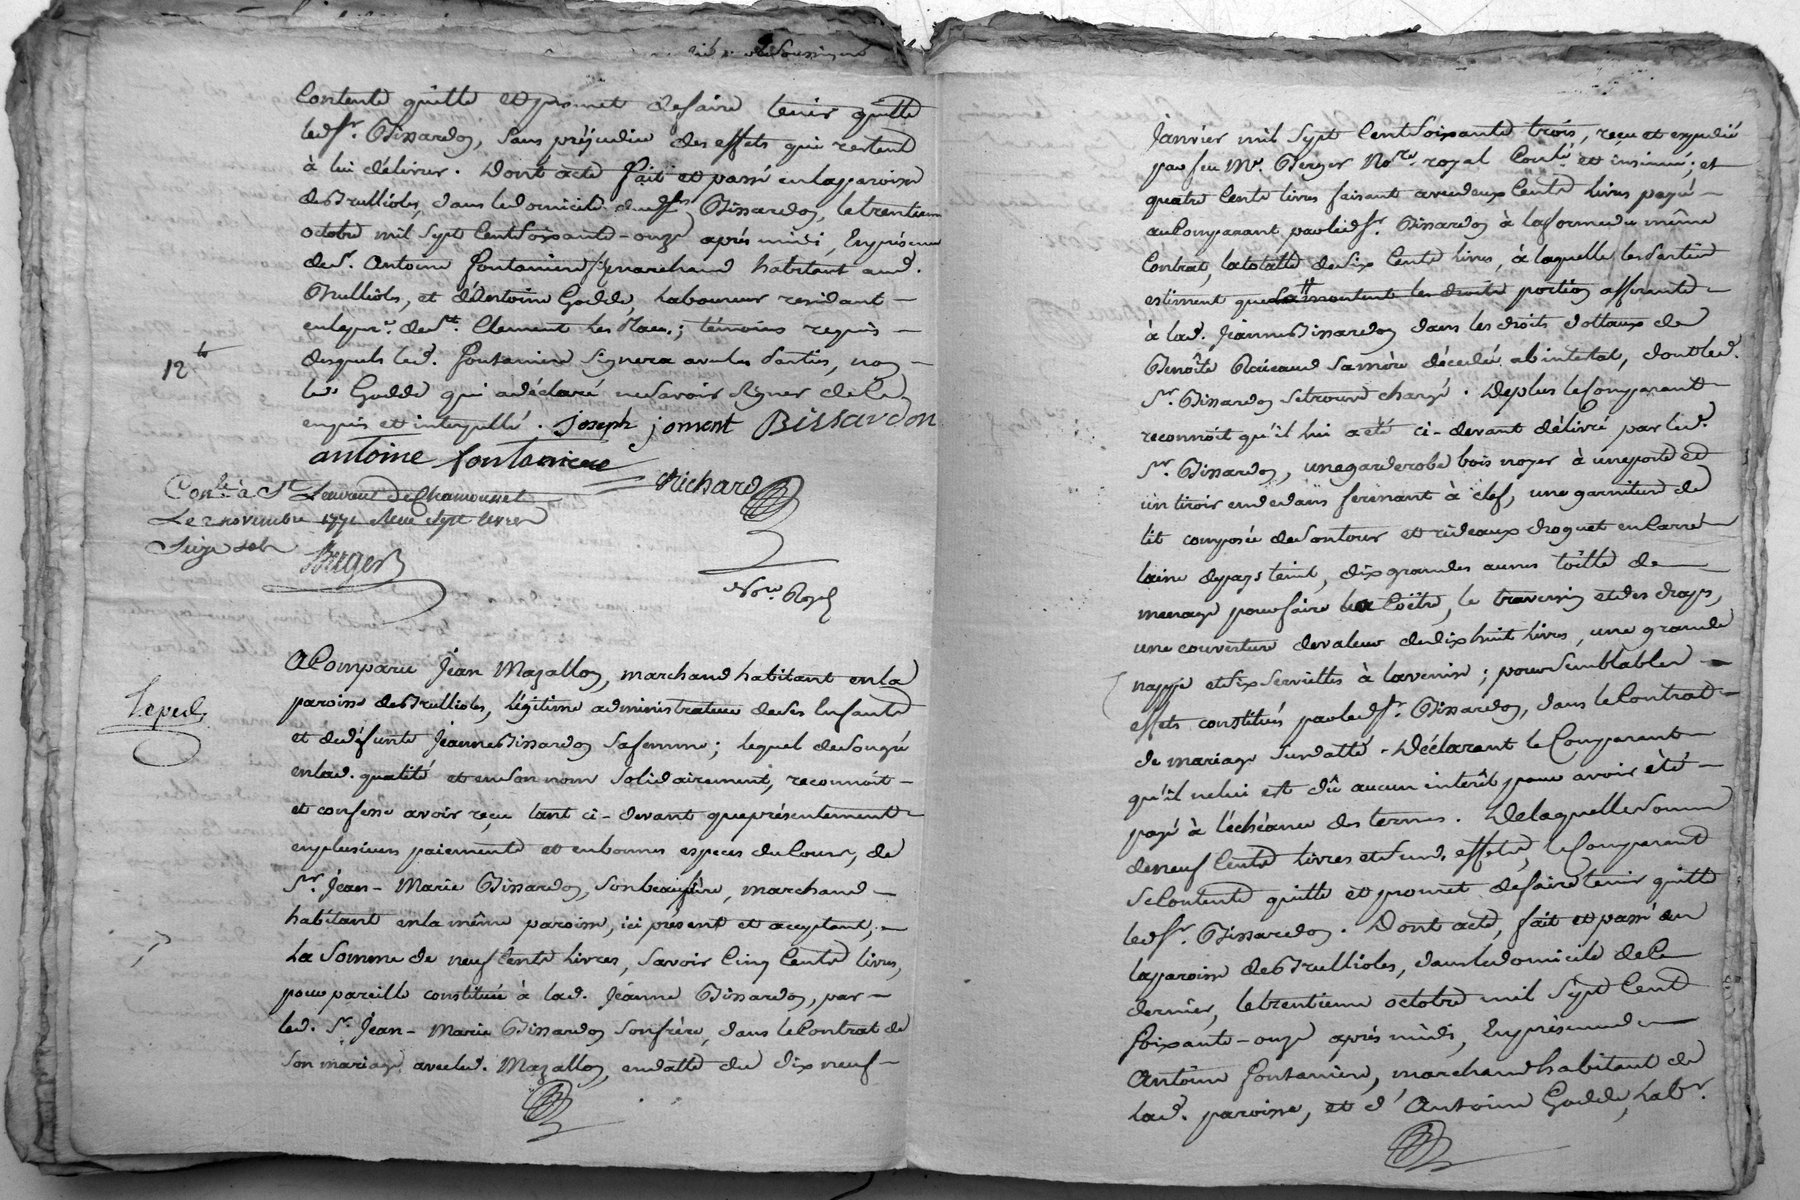 Contente quitte et promet de faire tenir quitte
led. Sr. Bissardon, sans préjudice des effets qui restent
à lui délivrer. Dont acte fait et passé en la paroisse
des Trullioles, dans le domicile dud. Sr. Bissardon, le trentieme
octobre mil sept cent soixante-onze après midi, En présence
de Sr. Antoine fontaniere marchand habitant aud.
Thullioles, et d'Antoine Godde, Laboureur residant
en la pse. de St. Clement Les Places; témoins requis
desquels led. fontaniere signera avec les parties, non
led. Godde qui a déclaré ne savoir signer de ce
enquis et interpellé. joseph jomont Bissardon
antoine fontaniere Richard
12 to
Conlé. à St. Laurent De Chamousset
Le 2 novembre 1771 Reçu sept livres
Seize sols Berger
Nore. Royal
A Comparu Jean Mazallon, marchand habitant en la
Exped.
paroisse des Trullioles, légitime administrateur de ses Enfants
et de défunte Jeanne Bissardon sa femme; lequel de son gré
en lad. qualité et en son nom solidairement, reconnoit
et confesse avoir reçu tant ci-devant que présentement
en plusieurs paiements et en bonnes especes du Cours, de
Sr. Jean-Marie Bissardon, son beaufrère, marchand
habitant en la même paroisse, ici présent et acceptant,
La Somme de neuf Cents Livres, Savoir Cinq Cents livres,
pour pareille constituée à lad. Jeanne Bissardon, par
led. Sr. Jean-Marie Bissardon son frère, dans le Contrat de
son mariage avec led. Mazallon, en datte du dix neuf
Janvier mil sept Cent Soixante trois, reçu et expedié
par feu Me. Berger Nore. royal Conlé. et insinué; et
quatre Cents livres faisant avec deux Cents Livres payé
au Comparant par led. Sr. Bissardon à la forme du même
Contrat, la totalle de six Cents Livres, à laquelle les Parties
estiment que montent les droits portion afferante
à lad. Jeanne Bissardon dans les droits dottaux de
Benoîte Raicaud sa mère décédée ab intestat, dont led.
Sr. Bissardon se trouve chargé. De plus le Comparant
reconnoit qu'il lui a été ci-devant délivré par led.
Sr. Bissardon, une garderobe bois noyer à une porte et
un tiroir en dedans fermant à clef, une garniture de
lit composée de Son tour et rideaux droguet en Carré
laine de pays teint, dix grandes aunes toille de
menage pour faire la Coëtre, le traversin et des draps,
une couverture de valeur de dix huit livres, une grande
nappe et six serviettes à la venise; pour semblables
effets constitués par led. Sr. Bissardon, dans le Contrat
de mariage Susdatté. Déclarant le Comparant
qu'il ne lui est dû aucun intérêt pour avoir été
payé à l'échéance des termes. De laquelle Somme
de neuf Cents Livres et Susd. effets, le Comparant
se Contente quitte et promet de faire tenir quitte
led. Sr. Bissardon. Dont acte, fait et passé en
la paroisse des Trullioles, dans le domicile de ce
dernier, le trentieme octobre mil Sept Cent
soixante-onze après midi, En présence de
Antoine fontaniere, marchand habitant de
lad. paroisse, et d'Antoine Godde, Labr.